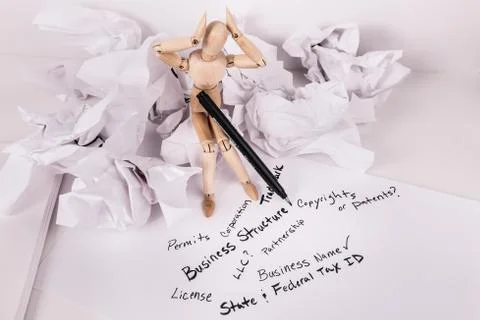 Trademark
Copyrights
or Patents?
Corporation
Permits
Business Structure
Partnership
LLC?
Business Name✓
License
State & Federal Tax ID